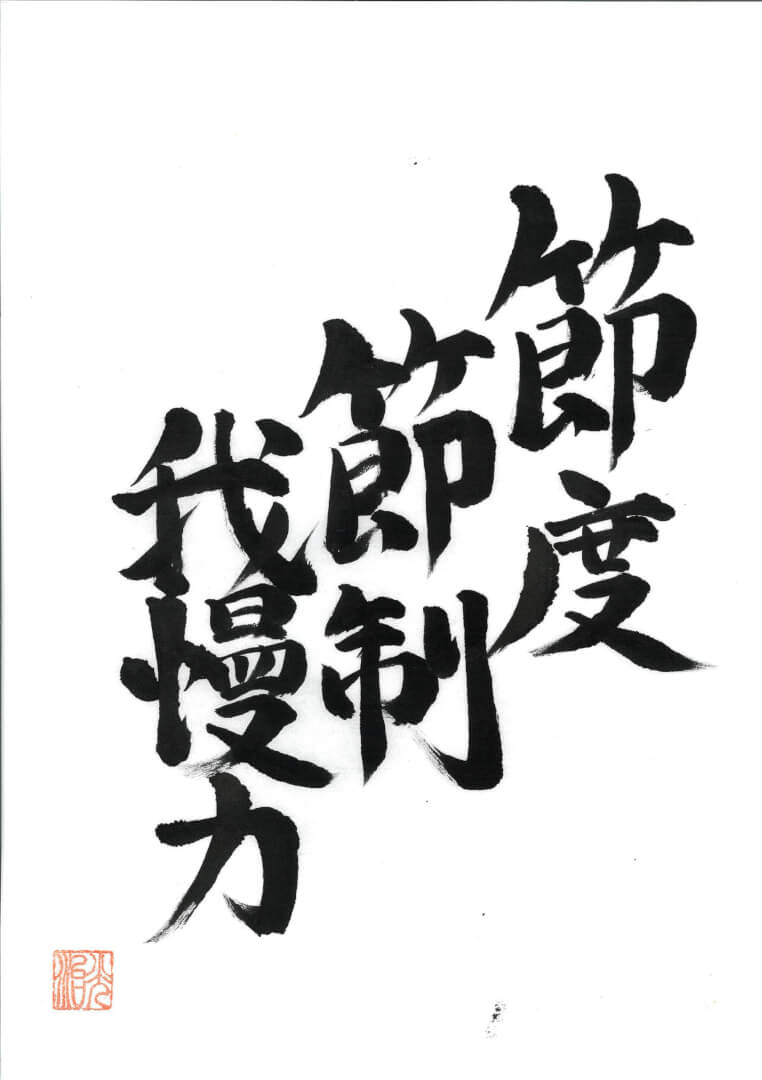 節度
節制
我慢力